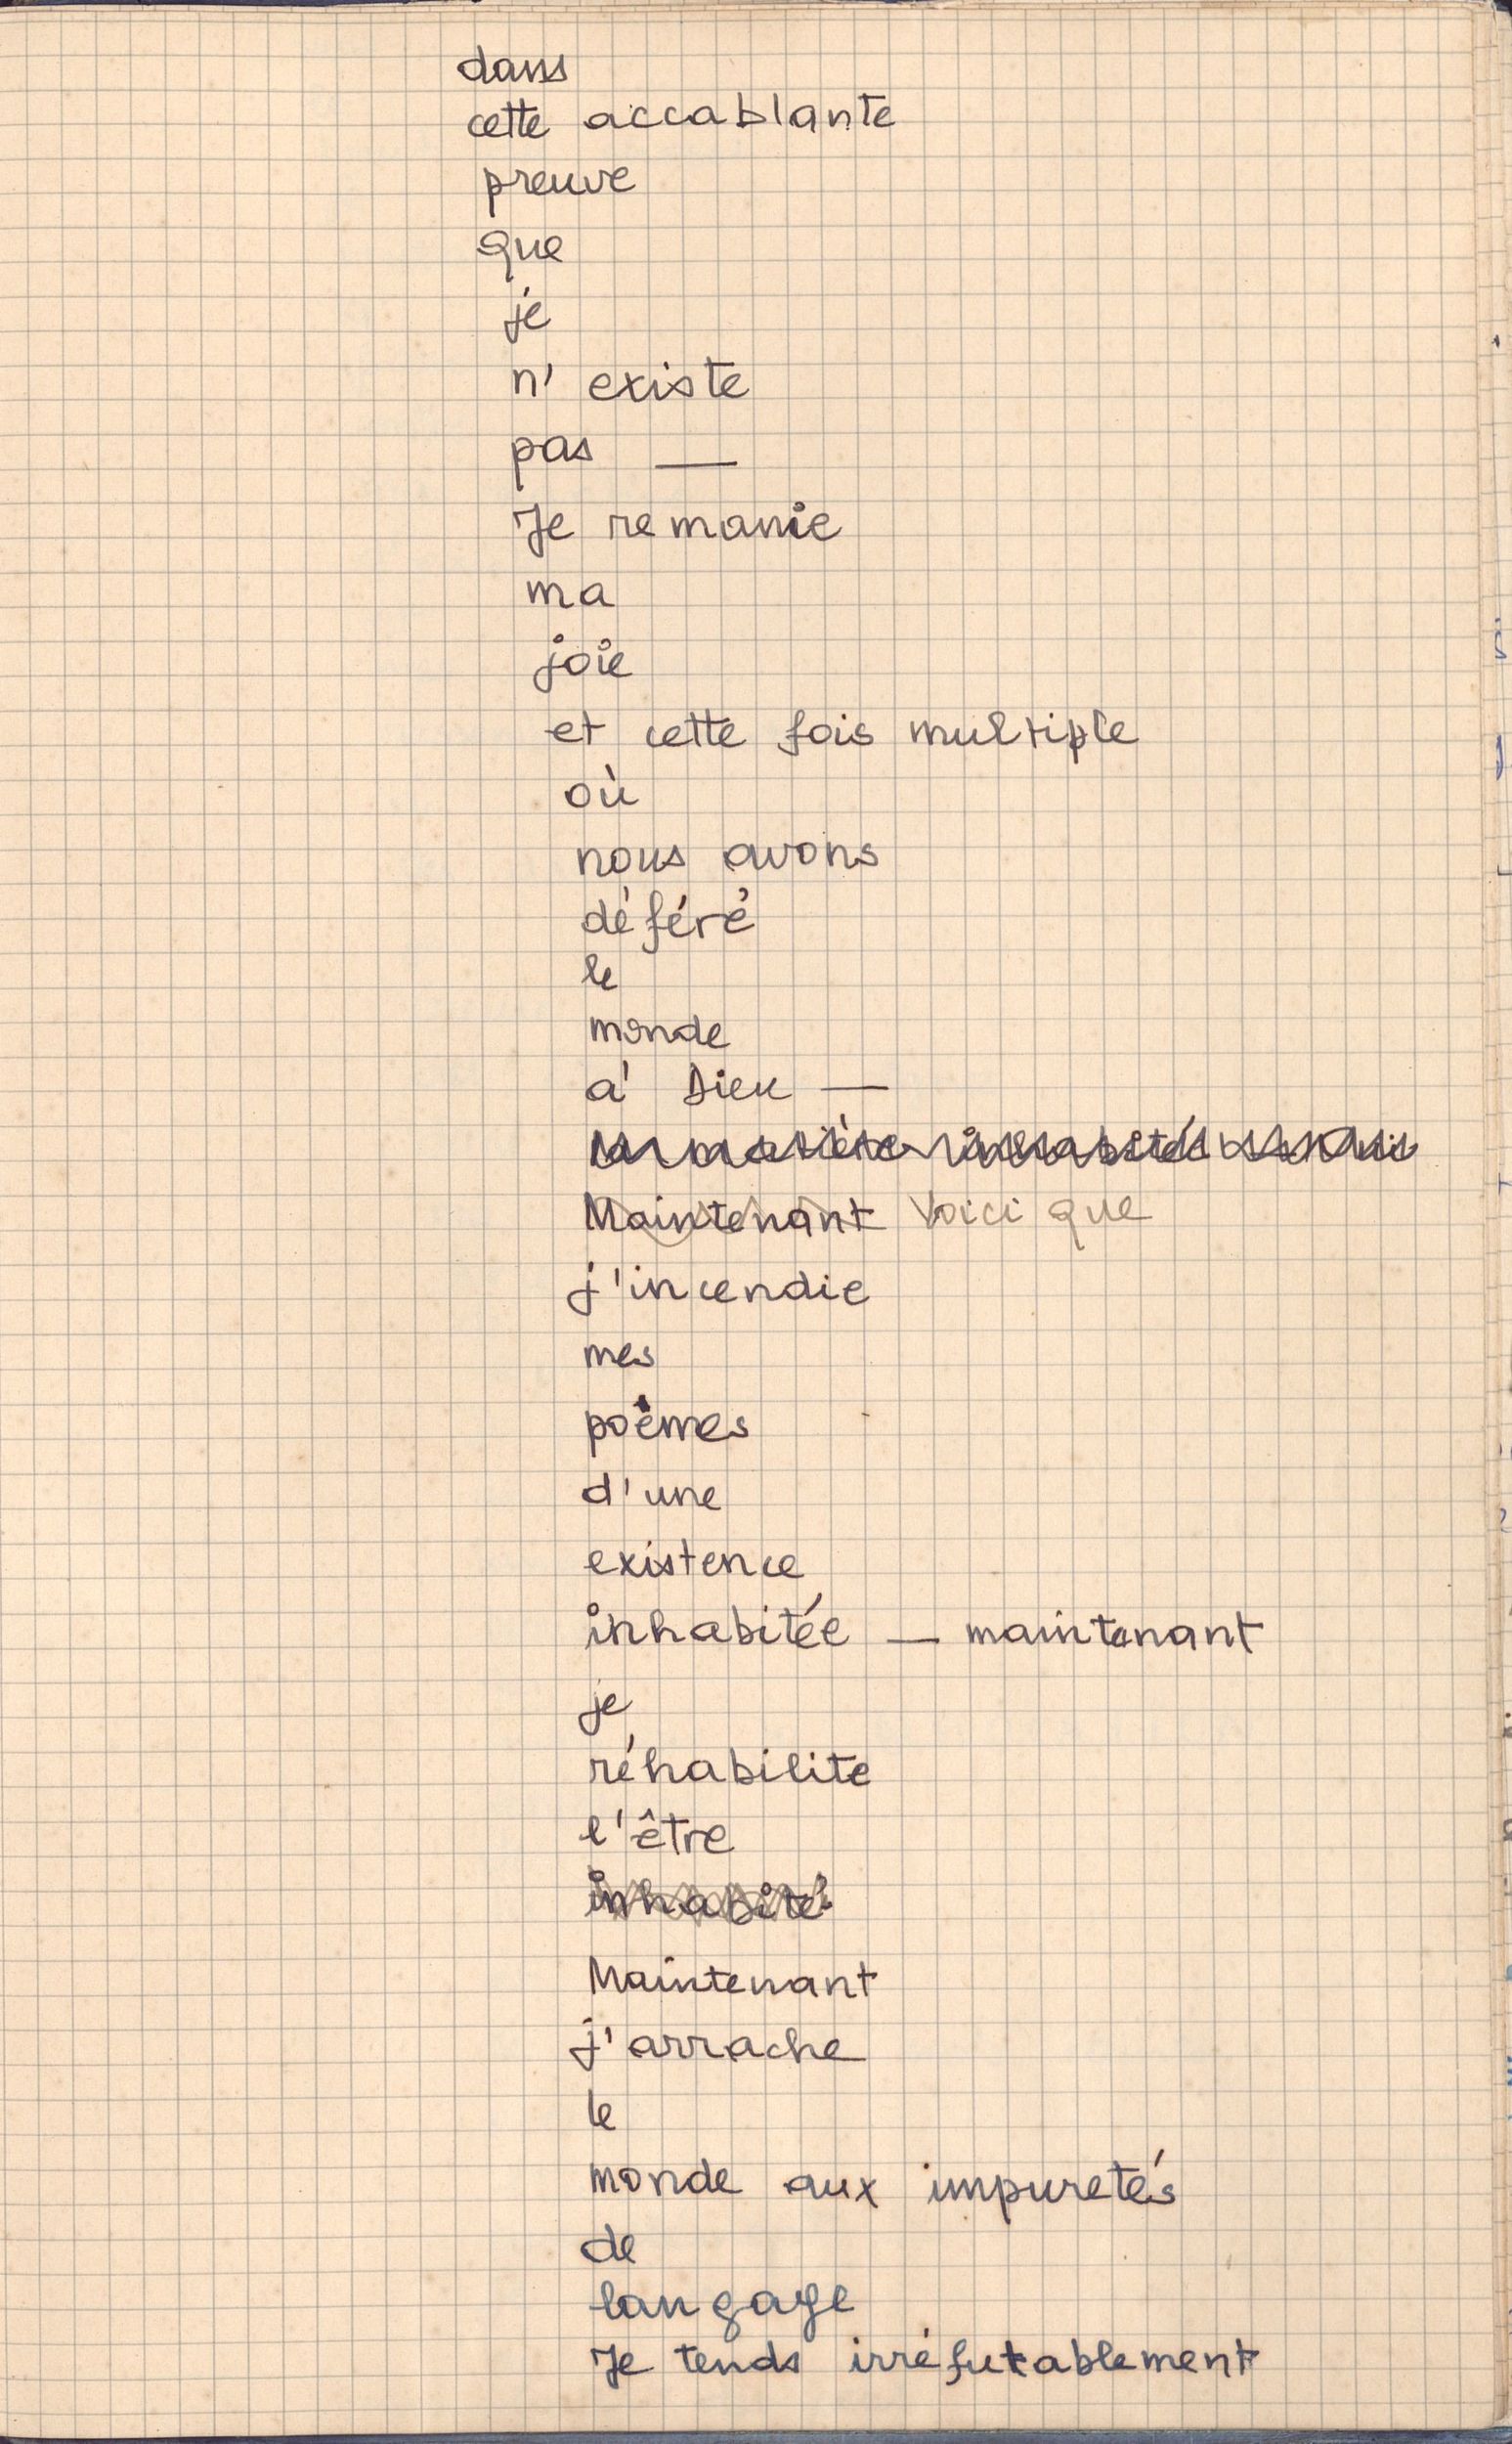 dans
cette accablante
preuve
que
je
n' existe
pas —
Je remanie
ma
joie
et cette fois multiple
où
nous avons
déféré
le
monde
à Dieu —
la matière inhabitée
Maintenant Voici que
j'incendie
mes
poèmes
d'une
existence
inhabitée — maintenant
je
réhabilite
l'être
inhabité
Maintenant
j'arrache
le
monde aux impuretés
de
langage
Je tends irréfutablement